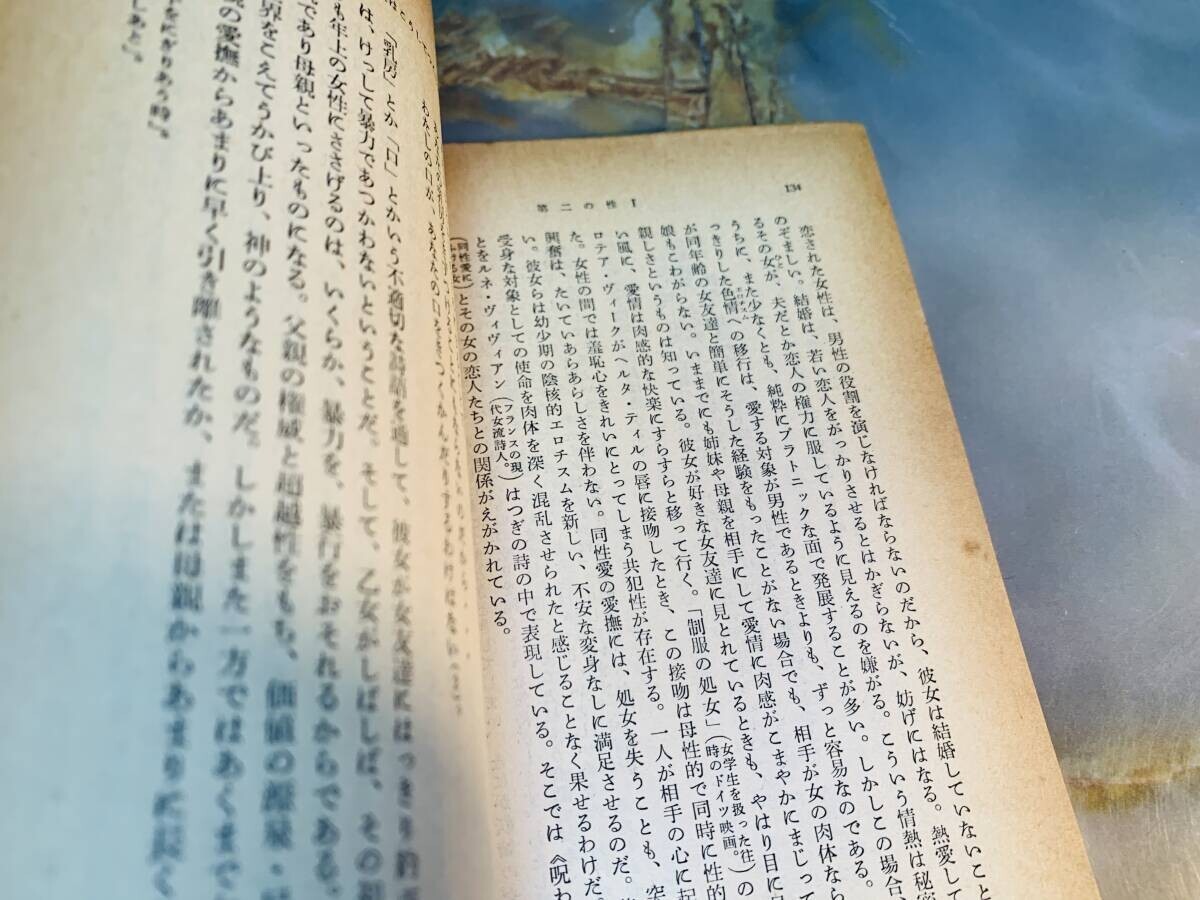 134
第二の性 I
恋された女性は、男性の役割を演じなければならないのだから、彼女は結婚していないこと
のぞましい。結婚は、若い恋人をがっかりさせるとはかぎらないが、妨げにはなる。熱愛して
るその女が、夫だとか恋人の権力に服しているように見えるのを嫌がる。こういう情熱は秘密
うちに、また少なくとも、純粋にプラトニックな面で発展することが多い。しかしこの場合、
っきりした色情への移行は、愛する対象が男性であるときよりも、ずっと容易なのである。
が同年齢の女友達と簡単にそうした経験をもったことがない場合でも、相手が女の肉体なら
娘もこわがらない。いままでにも姉妹や母親を相手にして愛情に肉感がこまやかにまじって
親しさというものは知っている。彼女が好きな女友達に見とれているときも、やはり目に見
い風に、愛情は肉感的な快楽にすらすらと移って行く。「制服の処女」(女学生を扱った往時のドイツ映画。)の
ロテア・ヴィークがヘルタ・ティルの唇に接吻したとき、この接吻は母性的で同時に性的
た。女性の間では羞恥心をきれいにとってしまう共犯性が存在する。一人が相手の心に起
興奮は、たいていあらあらしさを伴わない。同性愛の愛撫には、処女を失うことも、突
い。彼女らは幼少期の陰核的エロチスムを新しい、不安な変身なしに満足させるのだ。
受身な対象としての使命を肉体を深く混乱させられたと感じることなく果せるわけだ。
とをルネ・ヴィヴィアン(フランスの現代女流詩人。)はつぎの詩の中で表現している。そこでは《呪わ
とその女の恋人たちとの関係がえがかれている。
「乳房」とか「口」とかいう不適切な詩語を通して、彼女が女友達にはっきり約
は、けっして暴力であつかわないということだ。そして、乙女がしばしば、その
も年上の女性にささげるのは、いくらか、暴力を、暴行をおそれるからである。
であり母親といったものになる。父親の権威と超越性をもち、価値の源泉・
界をこえてうかび上り、神のようなものだ。しかしまた一方ではあくまで
の愛撫からあまりに早く引き離されたか、または母親からあまりに長く
をにぎりあう時』。
しあと』。